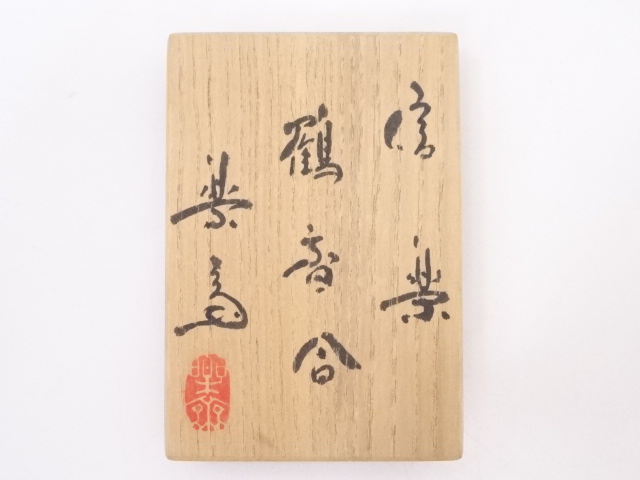 信楽
鶴香合
楽斎